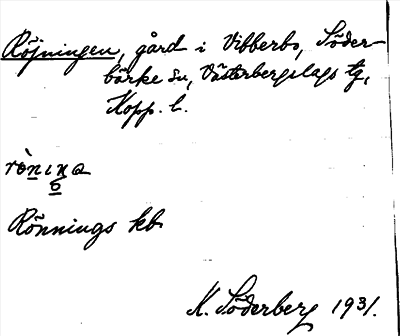 Röjningen, gård i Vibberbo, Söder-
bärke sn, Västerbergslags tg,
Kopp. l.
Rönnings kb.
K. Söderberg 1931.